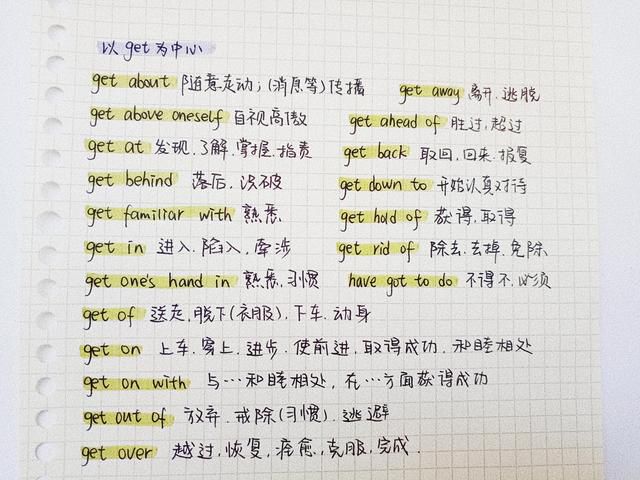 以 get 为中心
get about 随意走动；(消息等)传播 get away 离开.逃脱
get above oneself 自视高傲 get ahead of 胜过,超过
get at 发现.了解.掌握.指责 get back 取回,回来.报复
get behind 落后,识破 get down to 开始认真对待
get familiar with 熟悉 get hold of 获得,取得
get in 进入.陷入,牵涉 get rid of 除去.去掉.免除
get one's hand in 熟悉.习惯 have got to do 不得不.必须
get of 送走,脱下(衣服).下车.动身
get on 上车.穿上.进步.使前进,取得成功.和睦相处
get on with 与…和睦相处,在…方面获得成功
get out of 放弃.戒除(习惯).逃避
get over 越过,恢复,痊愈,克服,完成.